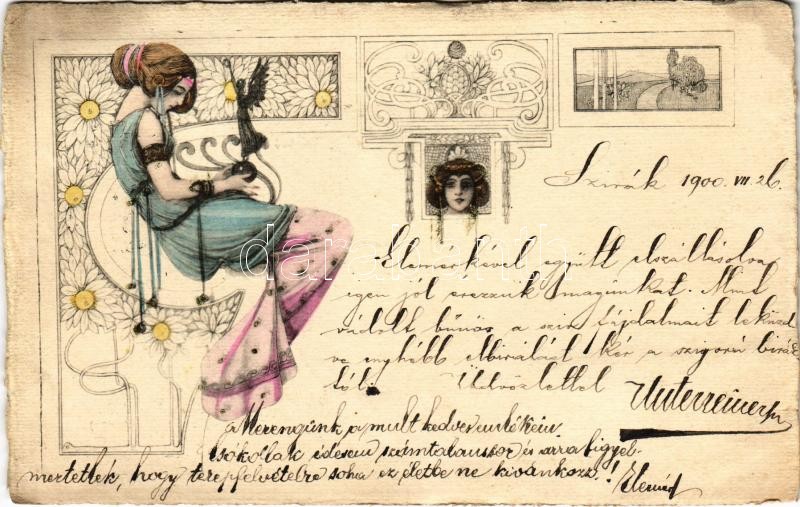 Szirák 1900. VII. 26.
Elemérkével együtt elszállásolva
igen jól érezzük magunkat. Mint
vádolt bűnös a szív fájdalmait leküzd
ve enyhébb elbírálást kér a szigorú birá
tól. Üdvözlettel
Merengünk a mult kedves emlékein
Csókollak édesem számtalanszor és arra figyel-
meztetlek, hogy terepfelvételre soha ez életbe ne kívánkozz!
Elemér